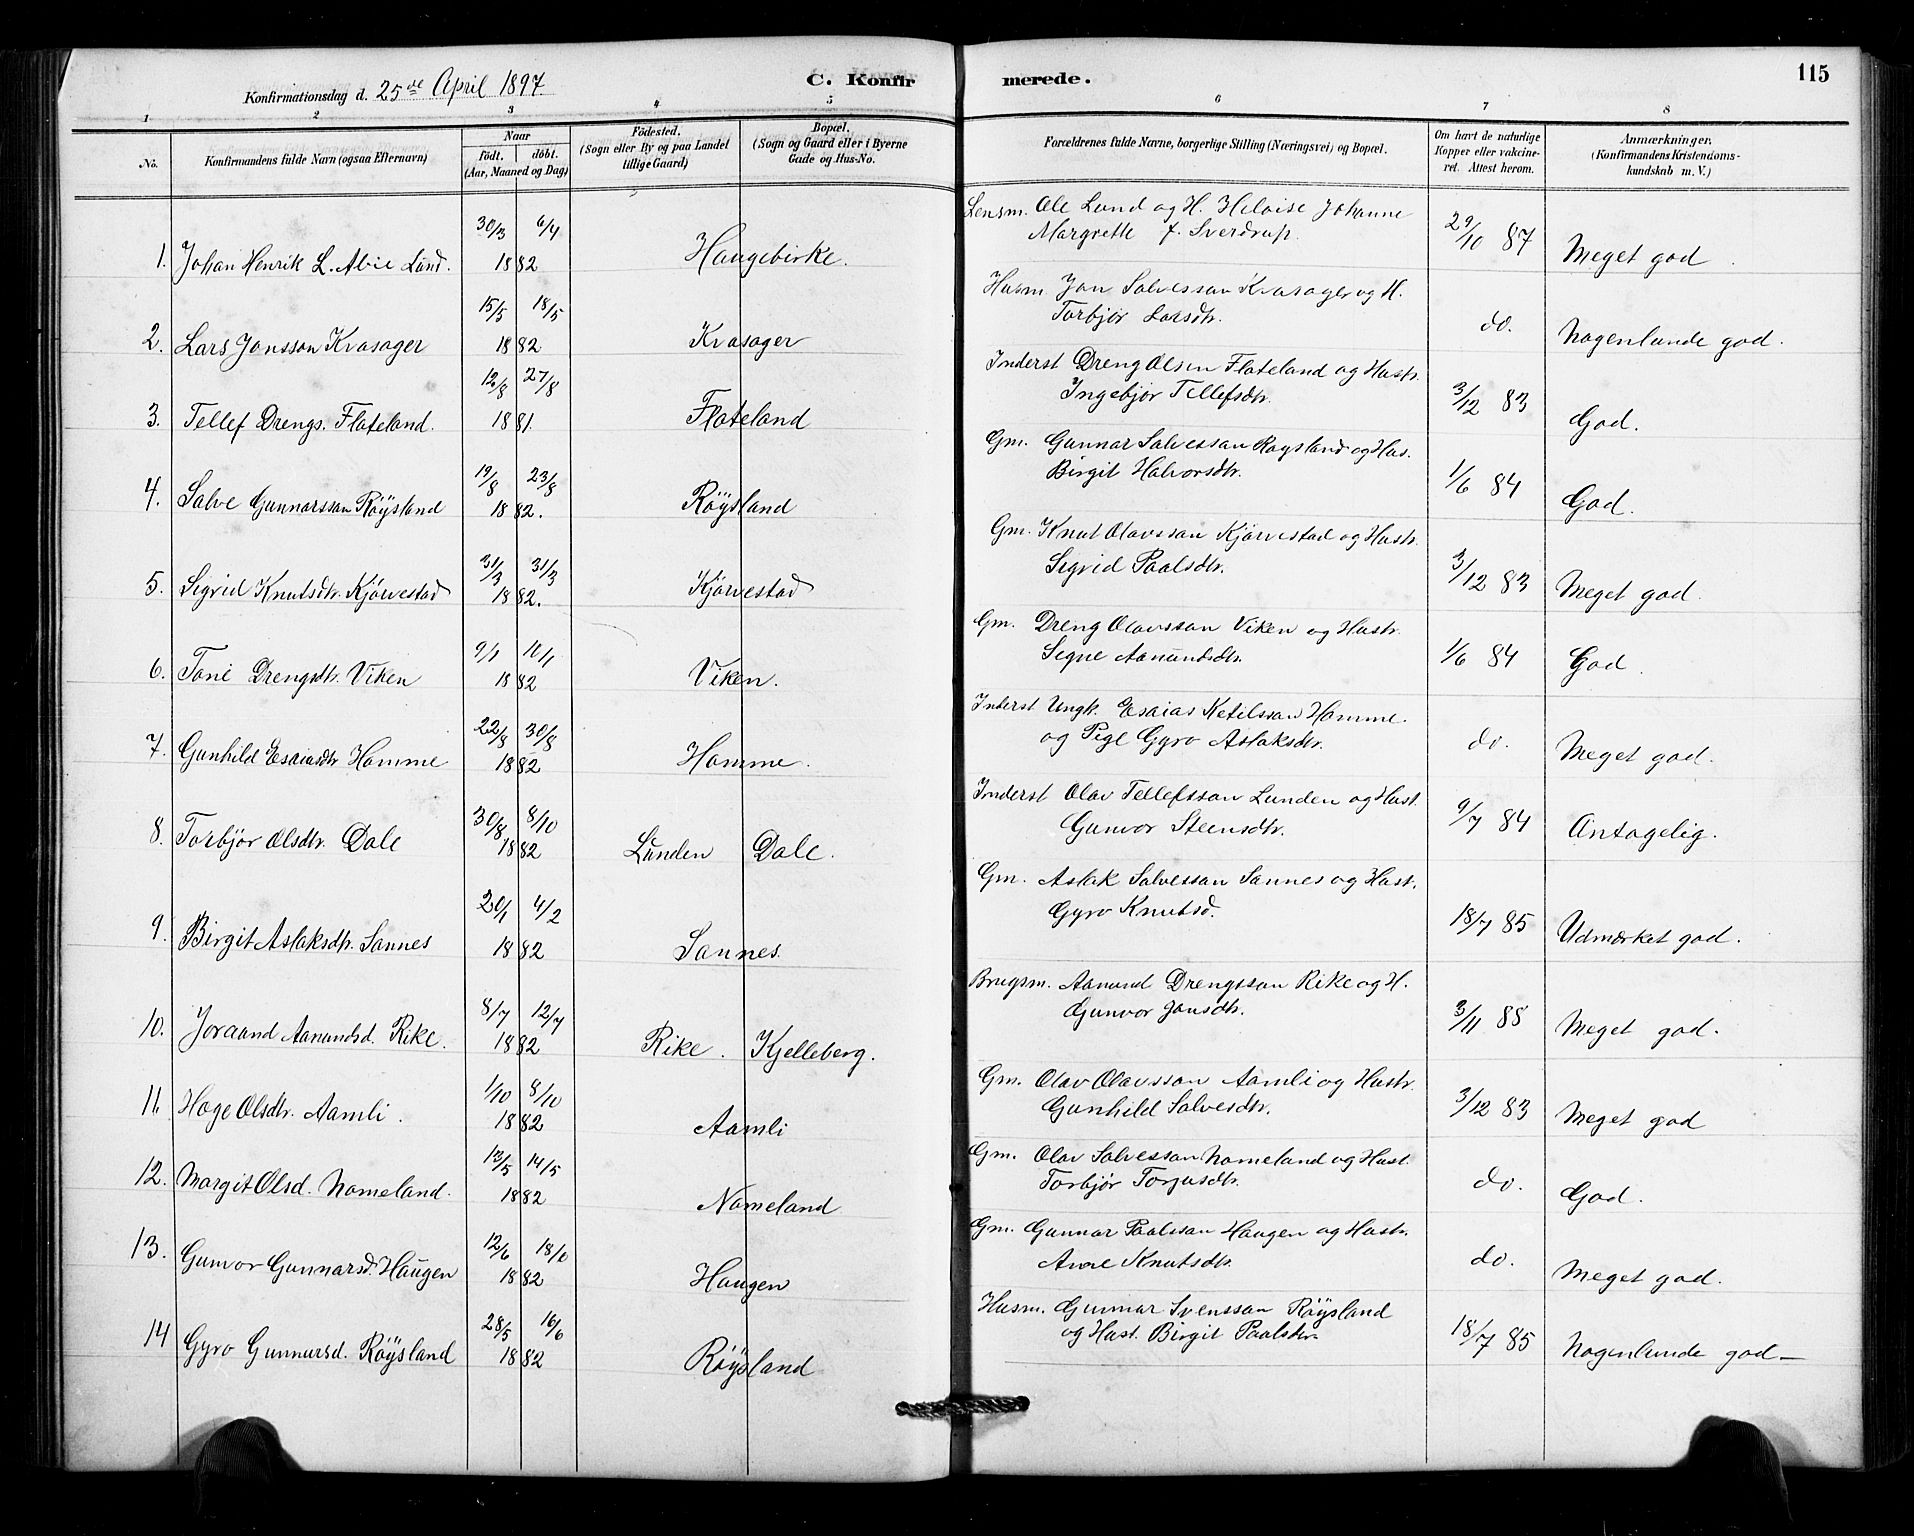 115
Konfirmationsdag d. 25de April 1897.
C. Konfir merede.
1 2 3 4 5 6 7 8
No.
Konfirmandens fulde Navn (ogsaa Efternavn)
Naar
födt. döbt.
(Aar, Maaned og Dag)
Födested.
(Sogn eller By og paa Landet
tillige Gaard)
Bopæl.
(Sogn og Gaard eller i Byerne
Gade og Hus-No.
Forældrenes fulde Navne, borgerlige Stilling (Næringsvei) og Bopæl.
Om havt de naturlige
Kopper eller vakcine-
ret. Attest herom.
Anmærkninger.
(Konfirmandens Kristendoms-
kundskab m. V.)
Lensm. Ole Lund og H. Heloise Johanne
30/3 6/4 Margrethe f. Sverdrup. 29/10 87
1. Johan Henrik L. Abie Lund. 1882 Haugebirke. Meget god.
15/5 18/5 Husm. Jon Salvessøn Kvasager og H.
Torbjør Larsdtr. do.
2. Lars Jonsson Kvasager 1882 Kvasager Nogenlunde god.
12/8 27/8 Inderst Dreng Olsen Flateland og Hustr.
Ingebjør Tellefsdtr. 3/12 83
3. Tellef Drengs. Flateland. 1881. Flateland God.
19/8 23/8 Gm. Gunnar Salvessøn Røysland og Hus.
Birgit Halvorsdtr. 1/6 84
4. Salve Gunnarssøn Røysland 1882. Røysland God.
31/3 31/3 Gm. Knut Olavssøn Kjørvestad og Hustr.
Sigrid Paalsdtr. 3/12 83
5. Sigrid Knutsdtr. Kjørvestad 1882. Kjørvestad Meget god.
9/1 10/1 Gm. Dreng Olavssøn Viken og Hustr.
Signe Aanundsdtr. 1/6 84
6. Tone Drengsdtr. Viken 1882 Viken. God.
22/8 30/8 Inderst Ungk. Esaias Ketilssøn Homme.
og Pige Gyro Aslaksdtr. do.
7. Gunhild Esaiasdtr Homme 1882 Homme. Meget god.
30/8 8/10 Inderst Olav Tellefssøn Lunden og Hust.
Gunvor Steensdtr. 9/7 84
8. Torbjør Olsdtr. Dale 1882 Lunden Dale. Antagelig.
20/1 4/2 Gm. Aslak Salvessøn Sannes og Hustr.
Gyro Knutsd. 18/7 85
9. Birgit Aslaksdtr. Sannes 1882 Sannes. Udmærket god.
8/7 12/7 Brugsm. Aanund Drengssøn Rike og H.
Gunvor Jonsdtr. 3/11 85
10. Joraand Aanundsd. Rike. 1882 Rike. Kjelleberg. Meget god.
1/10 8/10 Gm. Olav Olavssøn Aamli og Hustr.
Gunhild Salvesdtr. 3/12 83
11. Hoge Olsdtr. Aamli. 1882 Aamli Meget god
13/5 14/5 Gm. Olav Salvessøn Nomeland og Hust.
Torbjør Torjusdtr. do.
12. Margit Olsd. Nomeland. 1882 Nomeland God.
12/6 Gm. Gunnar Paalssøn Haugen og Hustr.
Anne Knutsdtr. do.
13. Gunvor Gunnarsd. Haugen 1882 Haugen Meget god.
28/5 16/6 Husm. Gunnar Svenssøn Røysland
og Hust. Birgit Paalsdtr. 18/7 85
14 Gyro Gunnarsd. Røysland 1882 Røysland Nogenlunde god